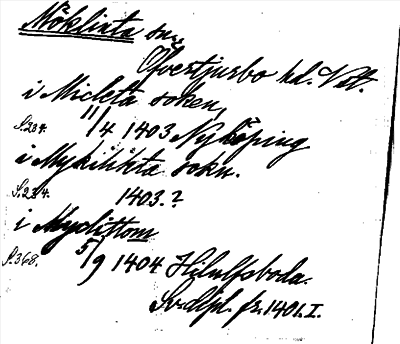 Möklinta sn,
Öfvertjurbo hd. Vstl.
i Micleta soken,
S.204. 11/4 1403 Nyköping
i Mykilikta sokn.
S.234. 1403.?
i Myclittom
S.368. 5/9 1404 Hilulfsboda.
Sv. dipl. fr. 1401. I.